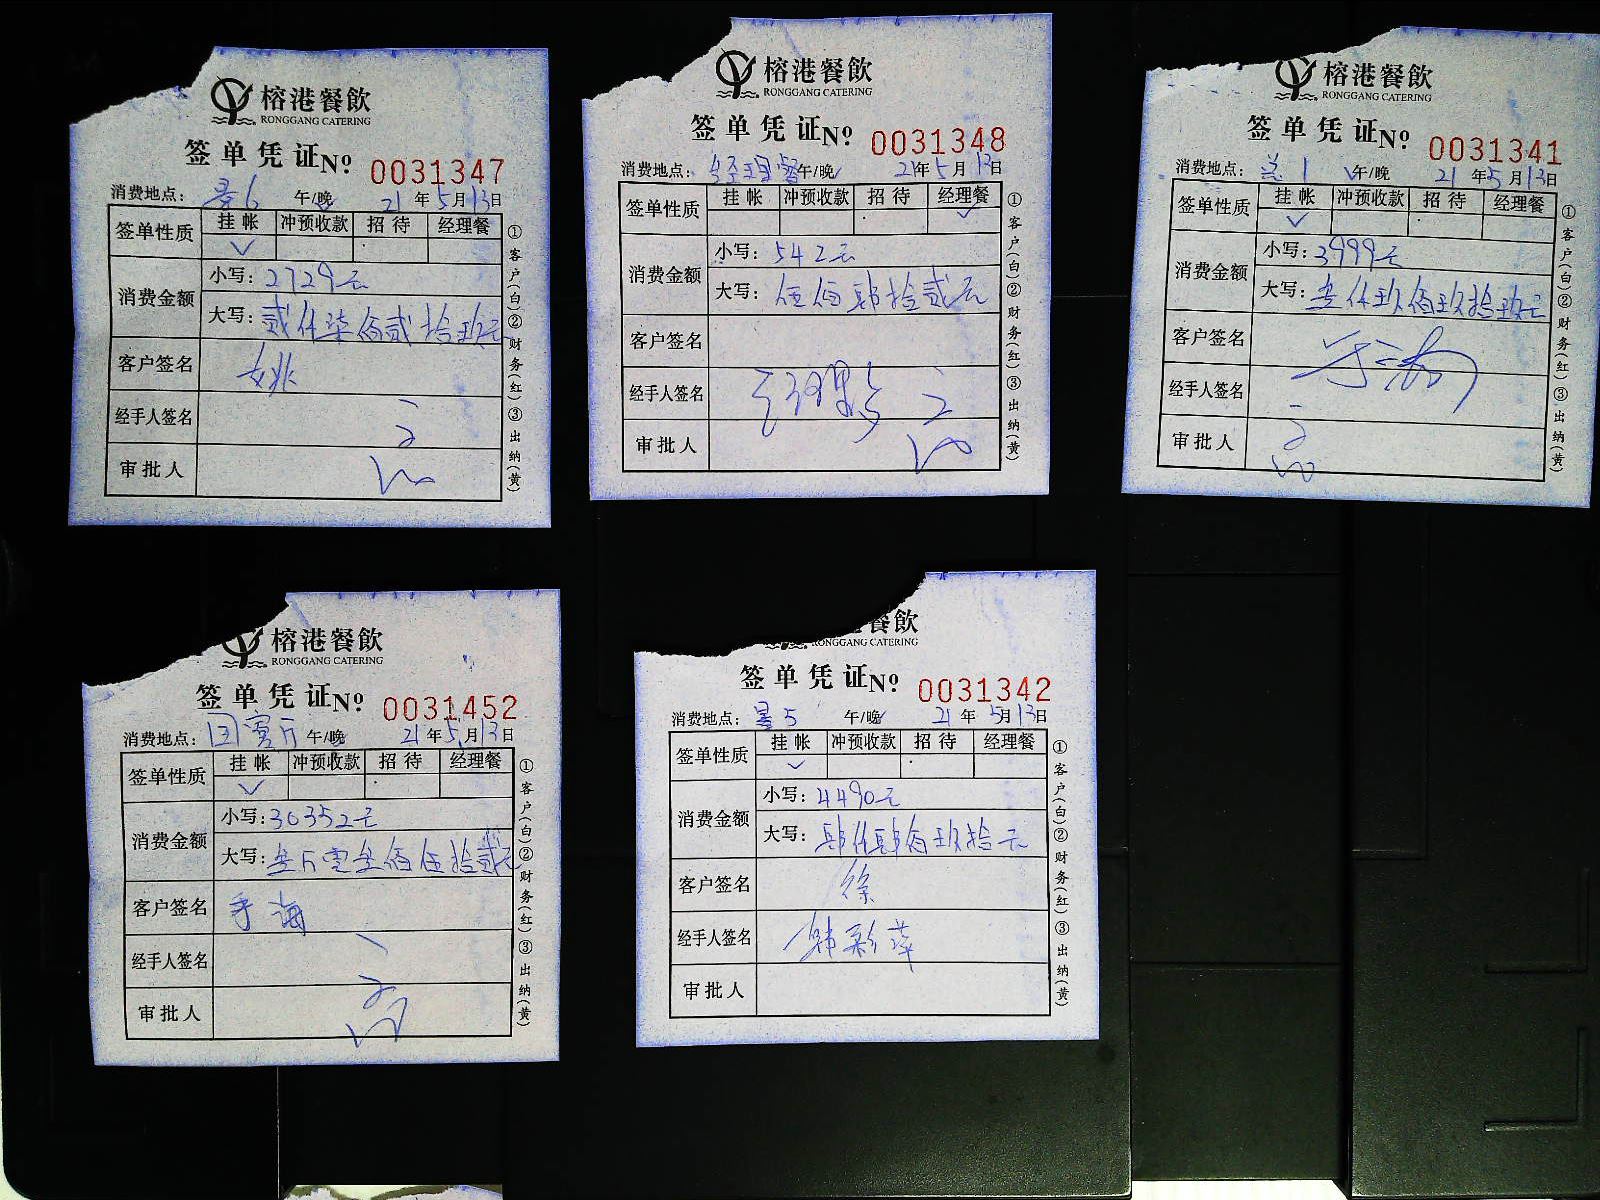 榕港餐飲
RONGGANG CATERING
签单凭证№ 0031347
消费地点：景6 午/晚 21年5月13日
签单性质 挂帐 冲预收款 招待 经理餐
✓
消费金额 小写：2729元
大写：贰仟柒佰贰拾玖元
客户签名 姚
经手人签名
审批人
①客户（白）②财务（红）③出纳（黄）
榕港餐飲
RONGGANG CATERING
签单凭证№ 0031348
消费地点：经理餐 午/晚 21年5月13日
签单性质 挂帐 冲预收款 招待 经理餐
✓
消费金额 小写：542元
大写：伍佰肆拾贰元
客户签名
经手人签名
审批人
①客户（白）②财务（红）③出纳（黄）
榕港餐飲
RONGGANG CATERING
签单凭证№ 0031341
消费地点：1 午/晚 21年5月13日
签单性质 挂帐 冲预收款 招待 经理餐
✓
消费金额 小写：3999元
大写：叁仟玖佰玖拾玖元
客户签名
经手人签名
审批人
①客户（白）②财务（红）③出纳（黄）
榕港餐飲
RONGGANG CATERING
签单凭证№ 0031452
消费地点：国宴厅 午/晚 21年5月13日
签单性质 挂帐 冲预收款 招待 经理餐
✓
消费金额 小写：30352元
大写：叁万零叁佰伍拾贰元
客户签名 海
经手人签名
审批人
①客户（白）②财务（红）③出纳（黄）
餐飲
RONGGANG CATERING
签单凭证№ 0031342
消费地点：景5 午/晚 21年5月13日
签单性质 挂帐 冲预收款 招待 经理餐
✓
消费金额 小写：4490元
大写：肆仟肆佰玖拾元
客户签名 徐
经手人签名 韩彩萍
审批人
①客户（白）②财务（红）③出纳（黄）